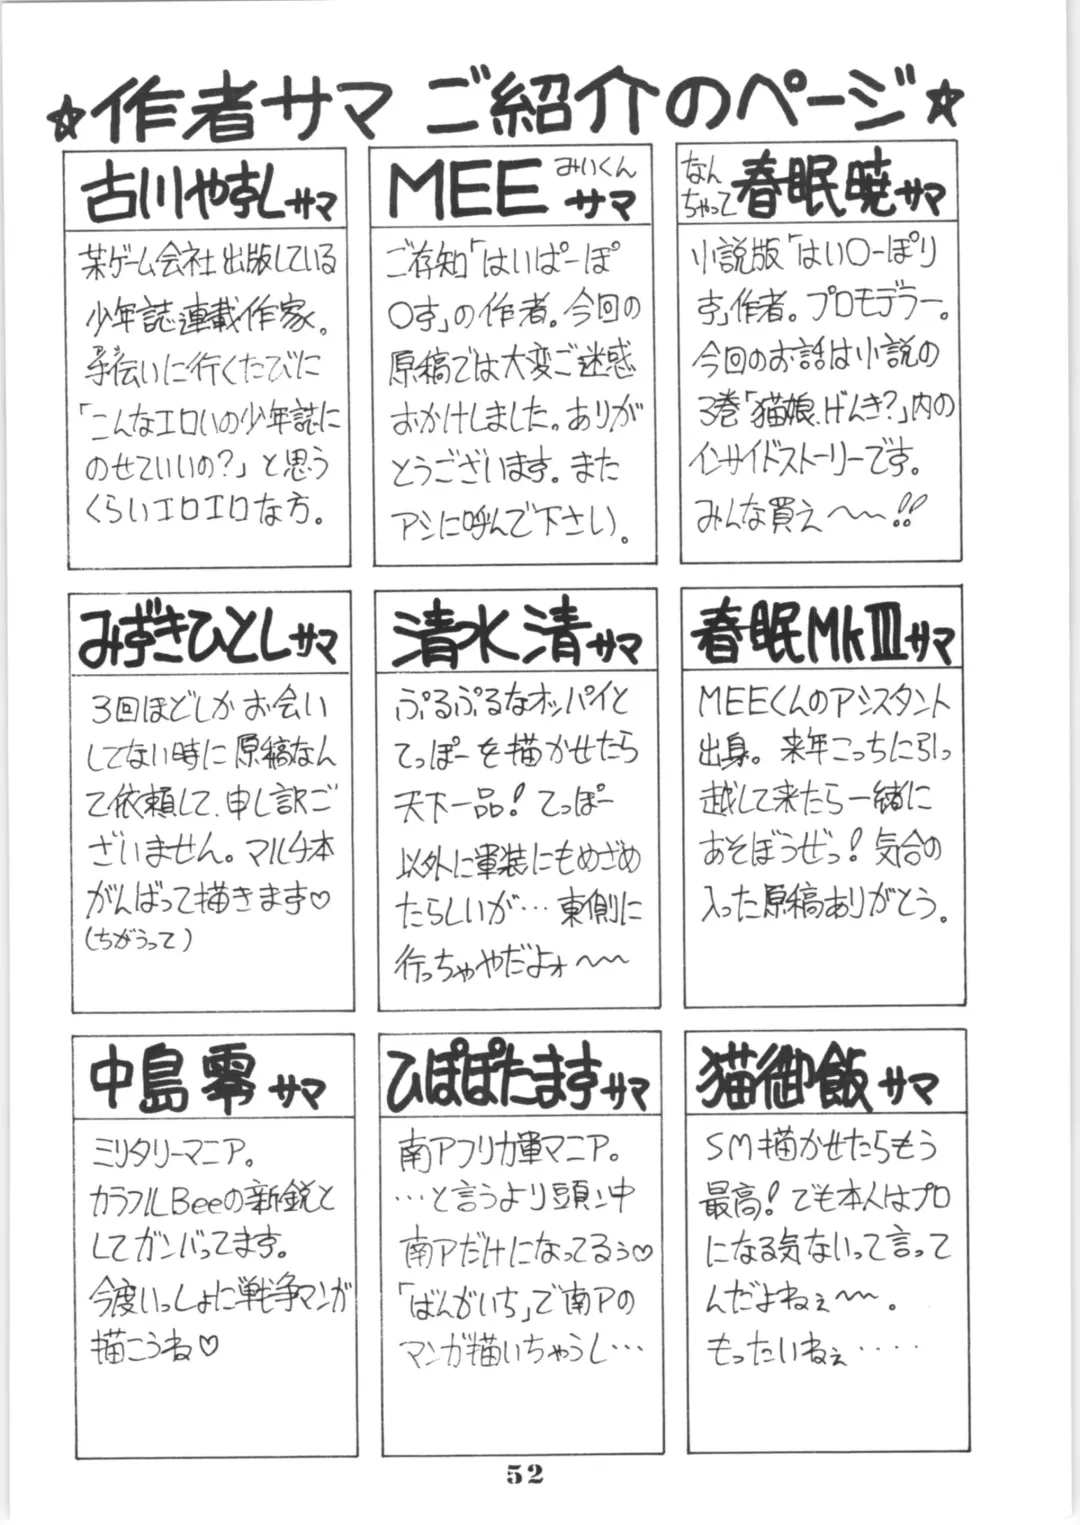 ☆作者サマ ご紹介のページ☆
古川やすしサマ
某ゲーム会社出版している
少年誌連載作家。
手伝いに行くたびに
「こんなエロいの少年誌に
のせていいの?」と思う
くらいエロエロな方。
MEE みいくん サマ
ご存知「はいぱーぽ
○す」の作者。今回の
原稿では大変ご迷惑
おかけしました。ありが
とうございます。また
アシに呼んで下さい。
なんちゃって 春眠暁サマ
小説版「はい○ーぽり
す」作者。プロモデラー。
今回のお話は小説の
3巻「猫娘、げんき?」内の
インサイドストーリーです。
みんな買え〜〜!!
みずきひとしサマ
3回ほどしかお会い
してない時に原稿なん
て依頼して、申し訳ご
ざいません。マルチ本
がんばって描きます♡
(ちがうって)
清水清サマ
ぷるぷるなオッパイと
てっぽーを描かせたら
天下一品! てっぽー
以外に軍装にもめざめ
たらしいが…東側に
行っちゃやだよォ〜〜
春眠MkⅢサマ
MEEくんのアシスタント
出身。来年こっちに引っ
越して来たら一緒に
あそぼうぜっ! 気合の
入った原稿ありがとう。
中島零サマ
ミリタリーマニア。
カラフルBeeの新鋭と
してガンバってます。
今度いっしょに戦争マンガ
描こうね♡
ひぽぽたますサマ
南アフリカ軍マニア。
…と言うより頭ン中
南アだけになってるぅ♡
「ばんがいち」で南アの
マンガ描いちゃうし…
猫御飯サマ
SM描かせたらもう
最高! でも本人はプロ
になる気ないって言って
んだよねぇ〜〜。
もったいねぇ‥‥
52